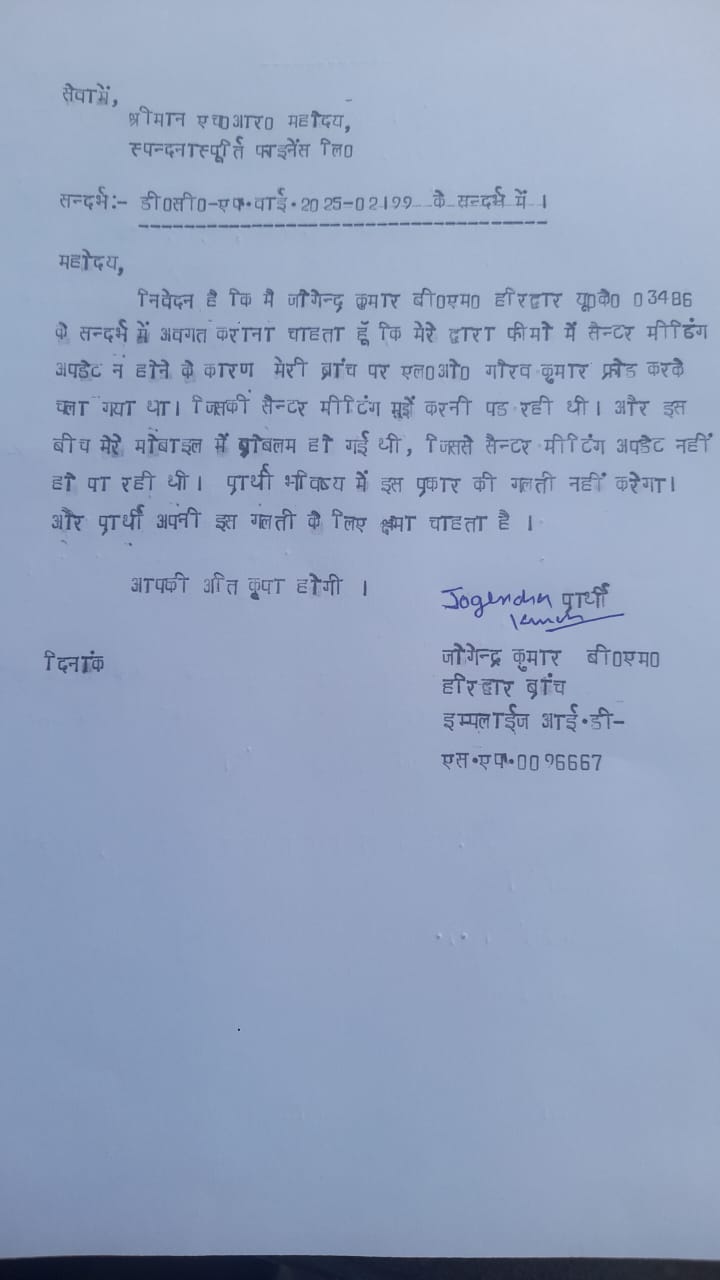 सेवामें,
श्रीमान एच0आर0 महोदय,
स्पन्दनास्फूर्ति फाइनेंस लि0
सन्दर्भ:- डी0सी0-एफ.वाई.2025-02199 के सन्दर्भ में ।
महोदय,
निवेदन है कि मै जोगेन्द्र कुमार बी0एम0 हरिद्वार यू0के0 03486
के सन्दर्भ में अवगत कराना चाहता हूँ कि मेरे द्वारा फीमो में सैन्टर मीडिंग
अपडेट न होने के कारण मेरी ब्रांच पर एल0ओ0 गौरव कुमार फ्रोड करके
चला गया था। जिसकी सैन्टर मीटिंग मुझे करनी पड रही थी। और इस
बीच मेरे मोबाइल में प्रोबलम हो गई थी, जिससे सैन्टर मीटिंग अपडेट नहीं
हो पा रही थी। प्रार्थी भविष्य में इस प्रकार की गलती नहीं करेगा।
और प्रार्थी अपनी इस गलती के लिए क्षमा चाहता है ।
आपकी अति कृपा होगी ।
Jogendra प्रार्थी
Kumar
दिनांक
जोगेन्द्र कुमार बी0एम0
हरिद्वार ब्रांच
इम्पलाईज आई.डी-
एस.एफ.0096667